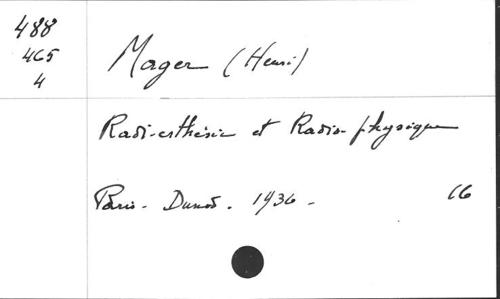 488
465
4
Mager (Henri)
Radi-esthésie et Radio-physique
Paris - Dunod. 1936 -
16